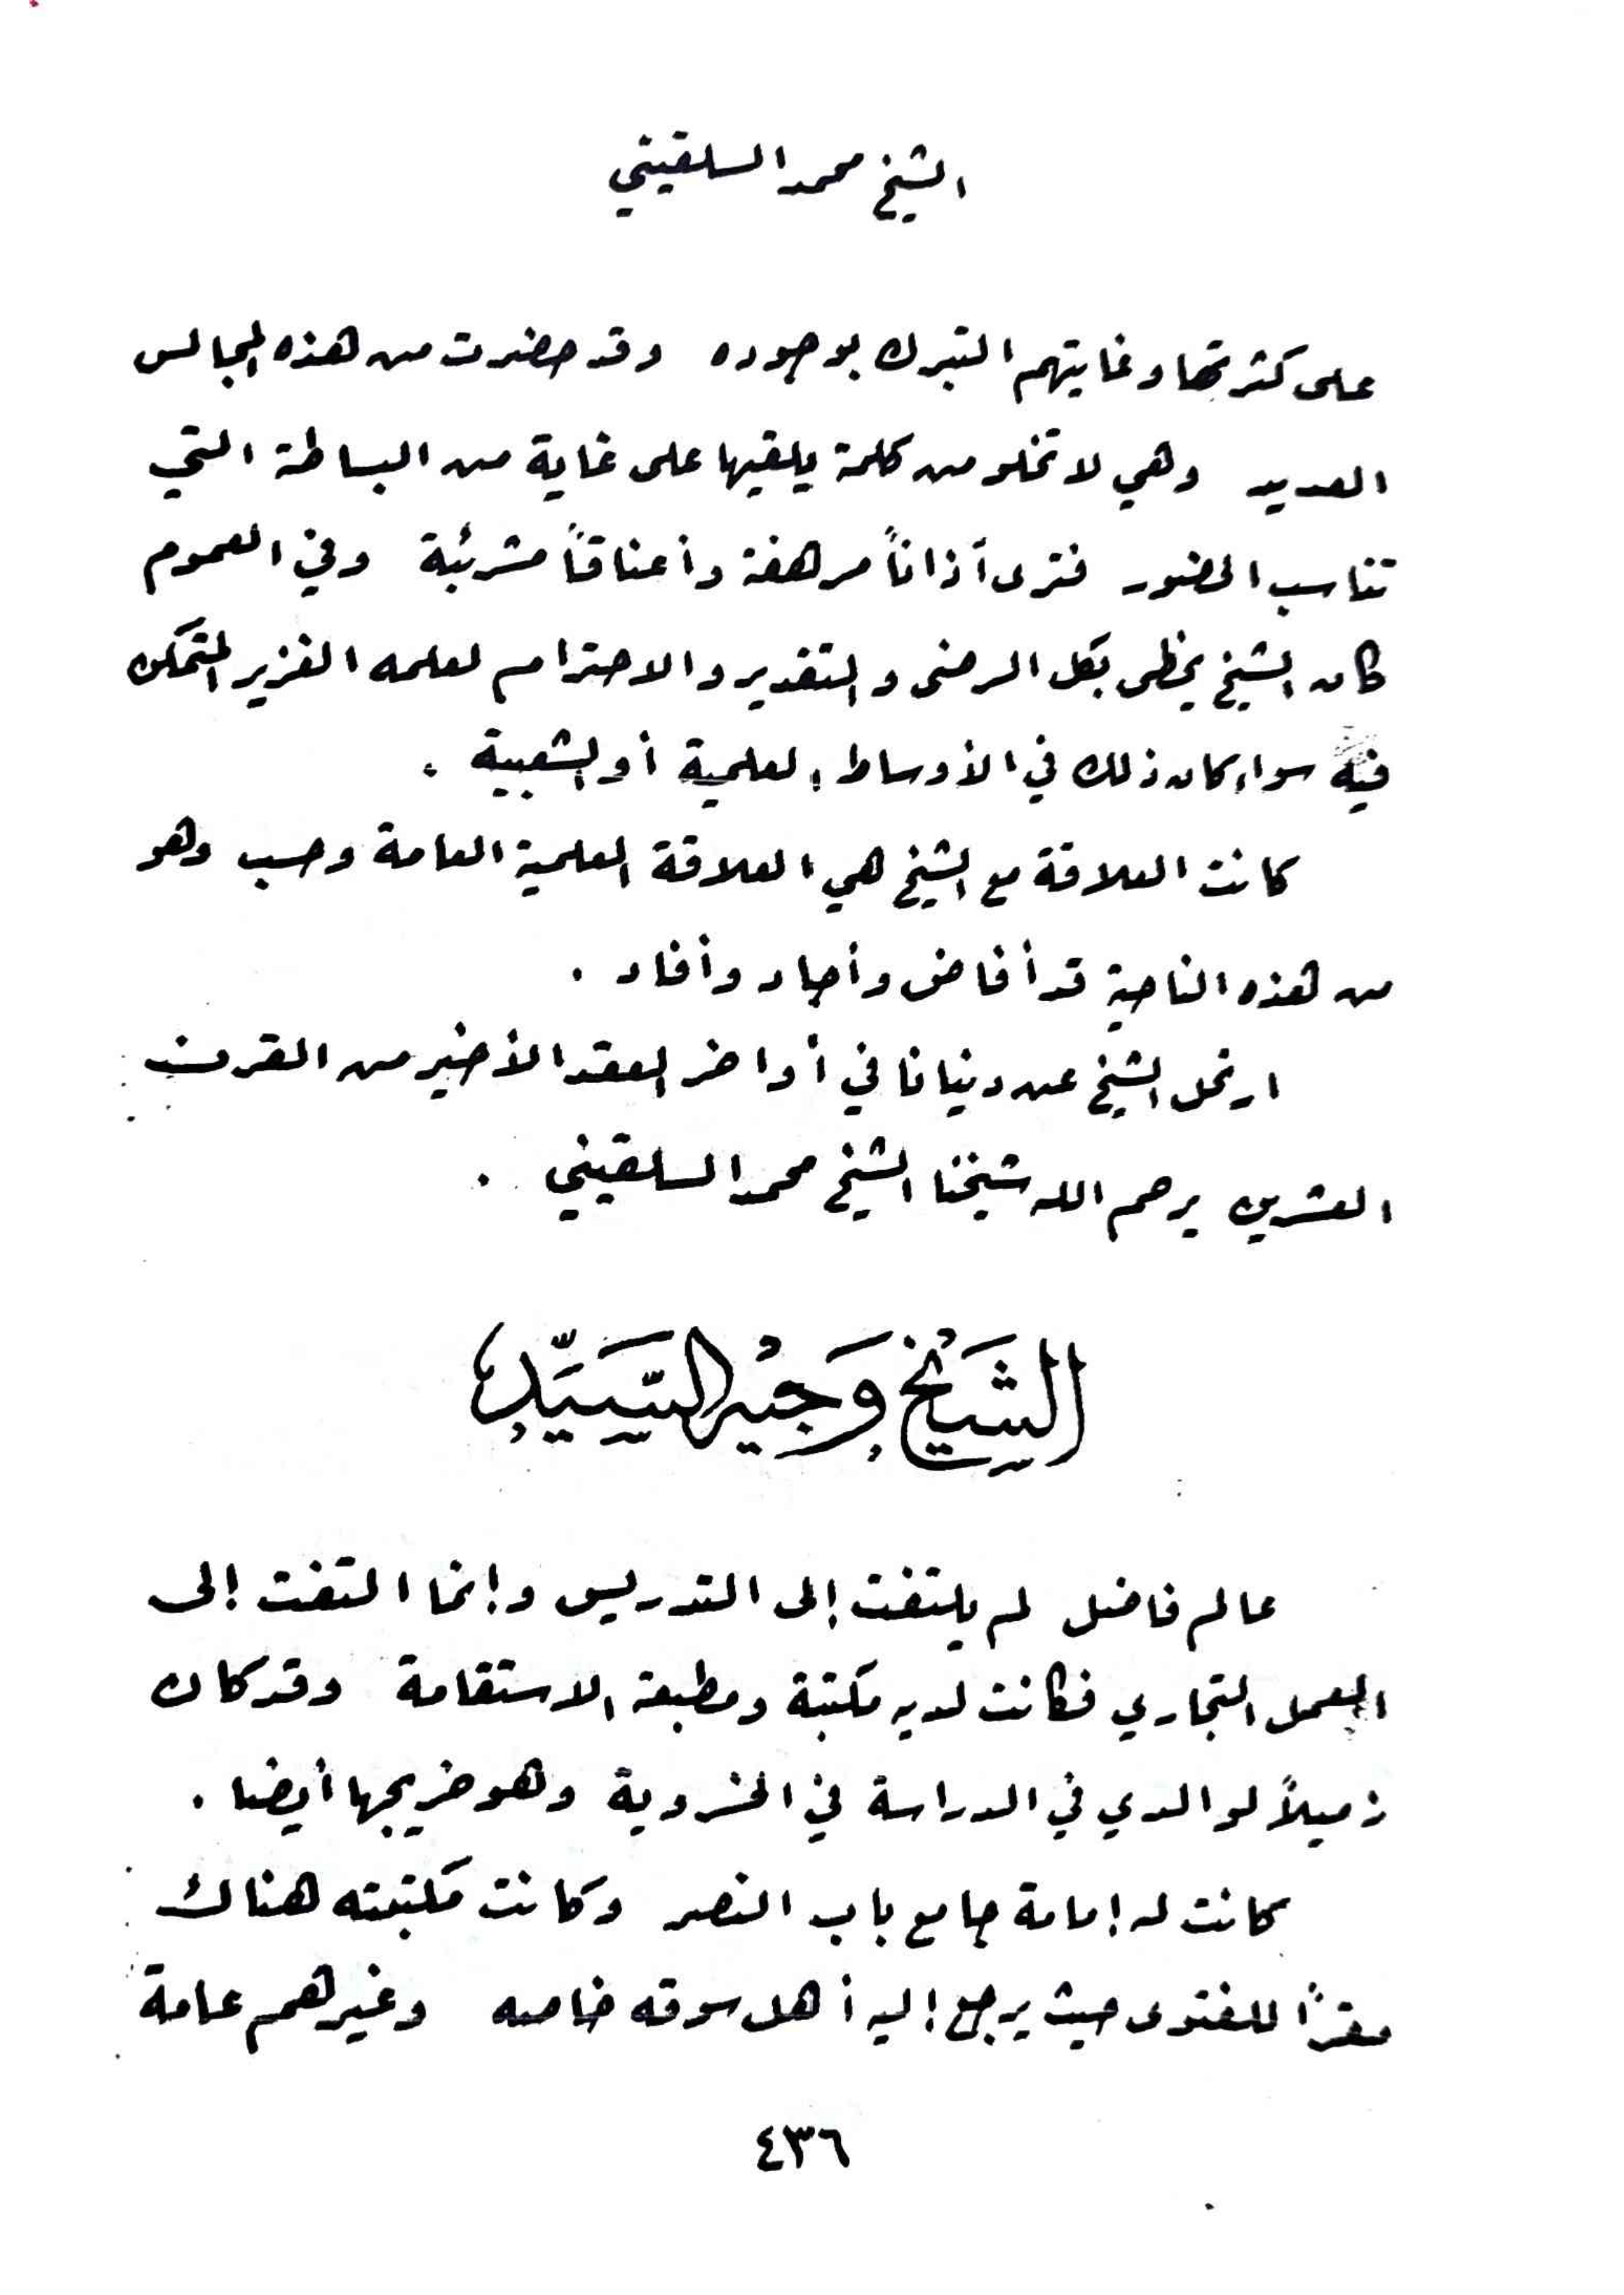 الشيخ محمد السلقيني
على كثرتها وغايتهم التبرك بوجوده وقد حضرت من هذه المجالس
العديد وهي لا تخلو من كلمة يلقيها على غاية من البساطة التي
تناسب الحضور فترى آذاناً مرهفة وأعناقاً مشرئبة وفي العموم
كان الشيخ يحظى بكل الرضى والتقدير والاحترام لعلمه الغزير المتمكن
فيه سواء كان ذلك في الأوساط العلمية أو الشعبية .
كانت العلاقة مع الشيخ هي العلاقة العلمية العامة وحسب وهو
من هذه الناحية قد أفاض وأجاد وأفاد .
ارتحل الشيخ عن دنيانا في أواخر العقد الأخير من القرن
العشرين يرحم الله شيخنا الشيخ محمد السلقيني .
الشَيْخ وَجيْه السَّيِّد
عالم فاضل لم يلتفت إلى التدريس وإنما التفت إلى
العمل التجاري فكانت لديه مكتبة ومطبعة الاستقامة وقد كان
زميلاً لوالدي في الدراسة في الخسروية وهو خريجها أيضا .
كانت له إمامة جامع باب النصر وكانت مكتبته هناك
مقراً للفتوى حيث يرجع إليه أهل سوقه خاصه وغيرهم عامة
٤٣٦